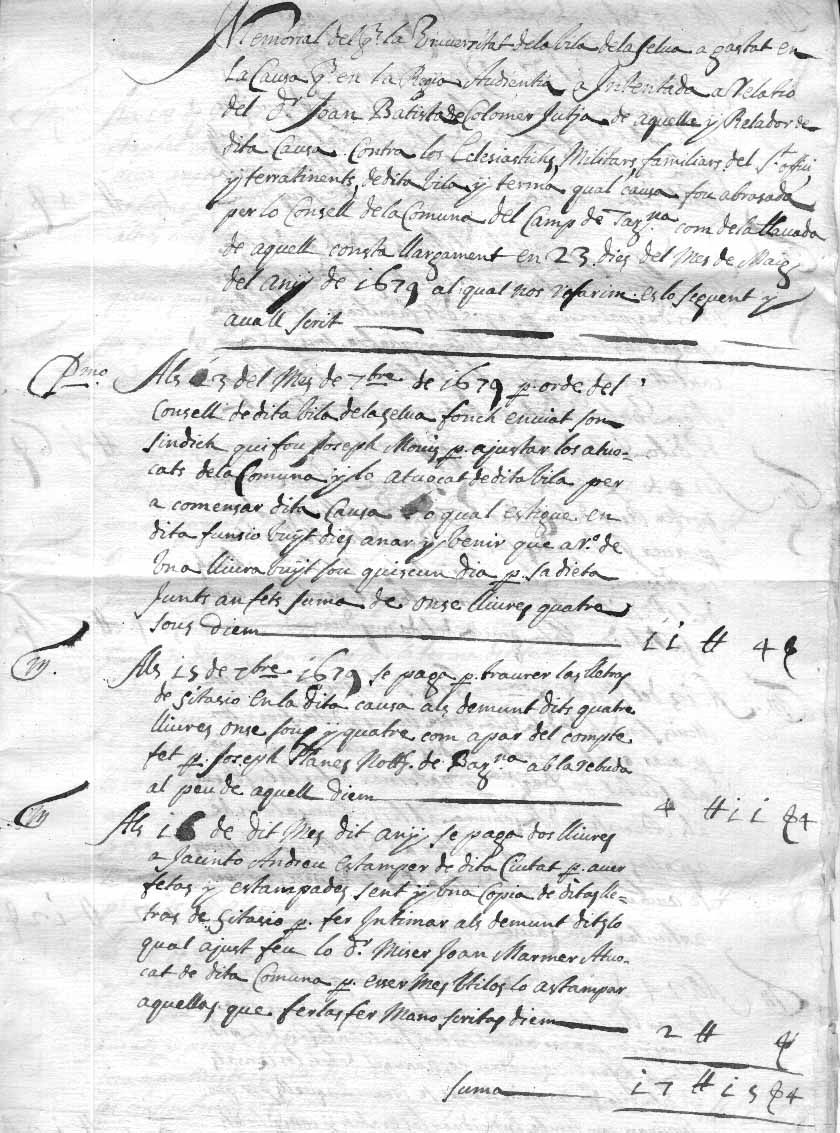 Memorial del q.ͤ la Universitat de la vila de la selva a gastat en
La Causa q.ͤ en la Regia Audientia a Intentada a relatio
del d.ʳ Joan Batista de Colomer Jutja de aquella y Relador de
dita Causa Contra los Eclesiastichs, Militars, familiars del S.ᵗ offici
y terratinents, de dita vila y terma, qual causa fou abrasada
per lo Consell de la Comuna del Camp de Tarᵍ.ⁿᵃ com de la llevada
de aquell consta llargament en 23 dies del Mes de Maig
del Any de 1679 al qual nos referim es lo seguent y
avall scrit
P.ᵐᵒ Als 23 del Mes de 7bre de 1679 p. orde del
Consell de dita vila de la selva fonch enviat son
sindich qui fou Joseph Monis p. ajustar los atvo-
cats de la Comuna y lo atvocat de dita vila per
a comensar dita Causa o qual estigue en
dita funsio vuyt dies anar y venir que a r.º de
una lliura vuyt sou quiscun dia p. sa dieta
Junts an fets suma de onse lliures quatre
sous diem 11 ₶ 4 ẞ
Itt. Als 15 de 7bre 1679 se paga p. traurer las lletras
de sitasio en la dita causa als demunt dits quatre
lliures onse sous y quatre com apar del compte
fet p. Joseph Planes Nott. de Barⁿᵃ ab la rebuda
al peu de aquell diem 4 ₶ 11 ẞ 4
Itt Als 16 de dit Mes dit any se paga dos lliures
a Jacinto Andreu estamper de dita Ciutat p. aver
fetas y estampades sent y una Copia de ditas lle-
tras de sitasio p. fer Intimar als demunt dits lo
qual ajust feu lo d.ʳ Miser Joan Marmer Atvo-
cat de dita Comuna p. esser Mes utilos lo astampar
aquellas que ferlas fer Mano scritas diem
2 ₶ ẞ
suma 17 ₶ 15 ẞ 4